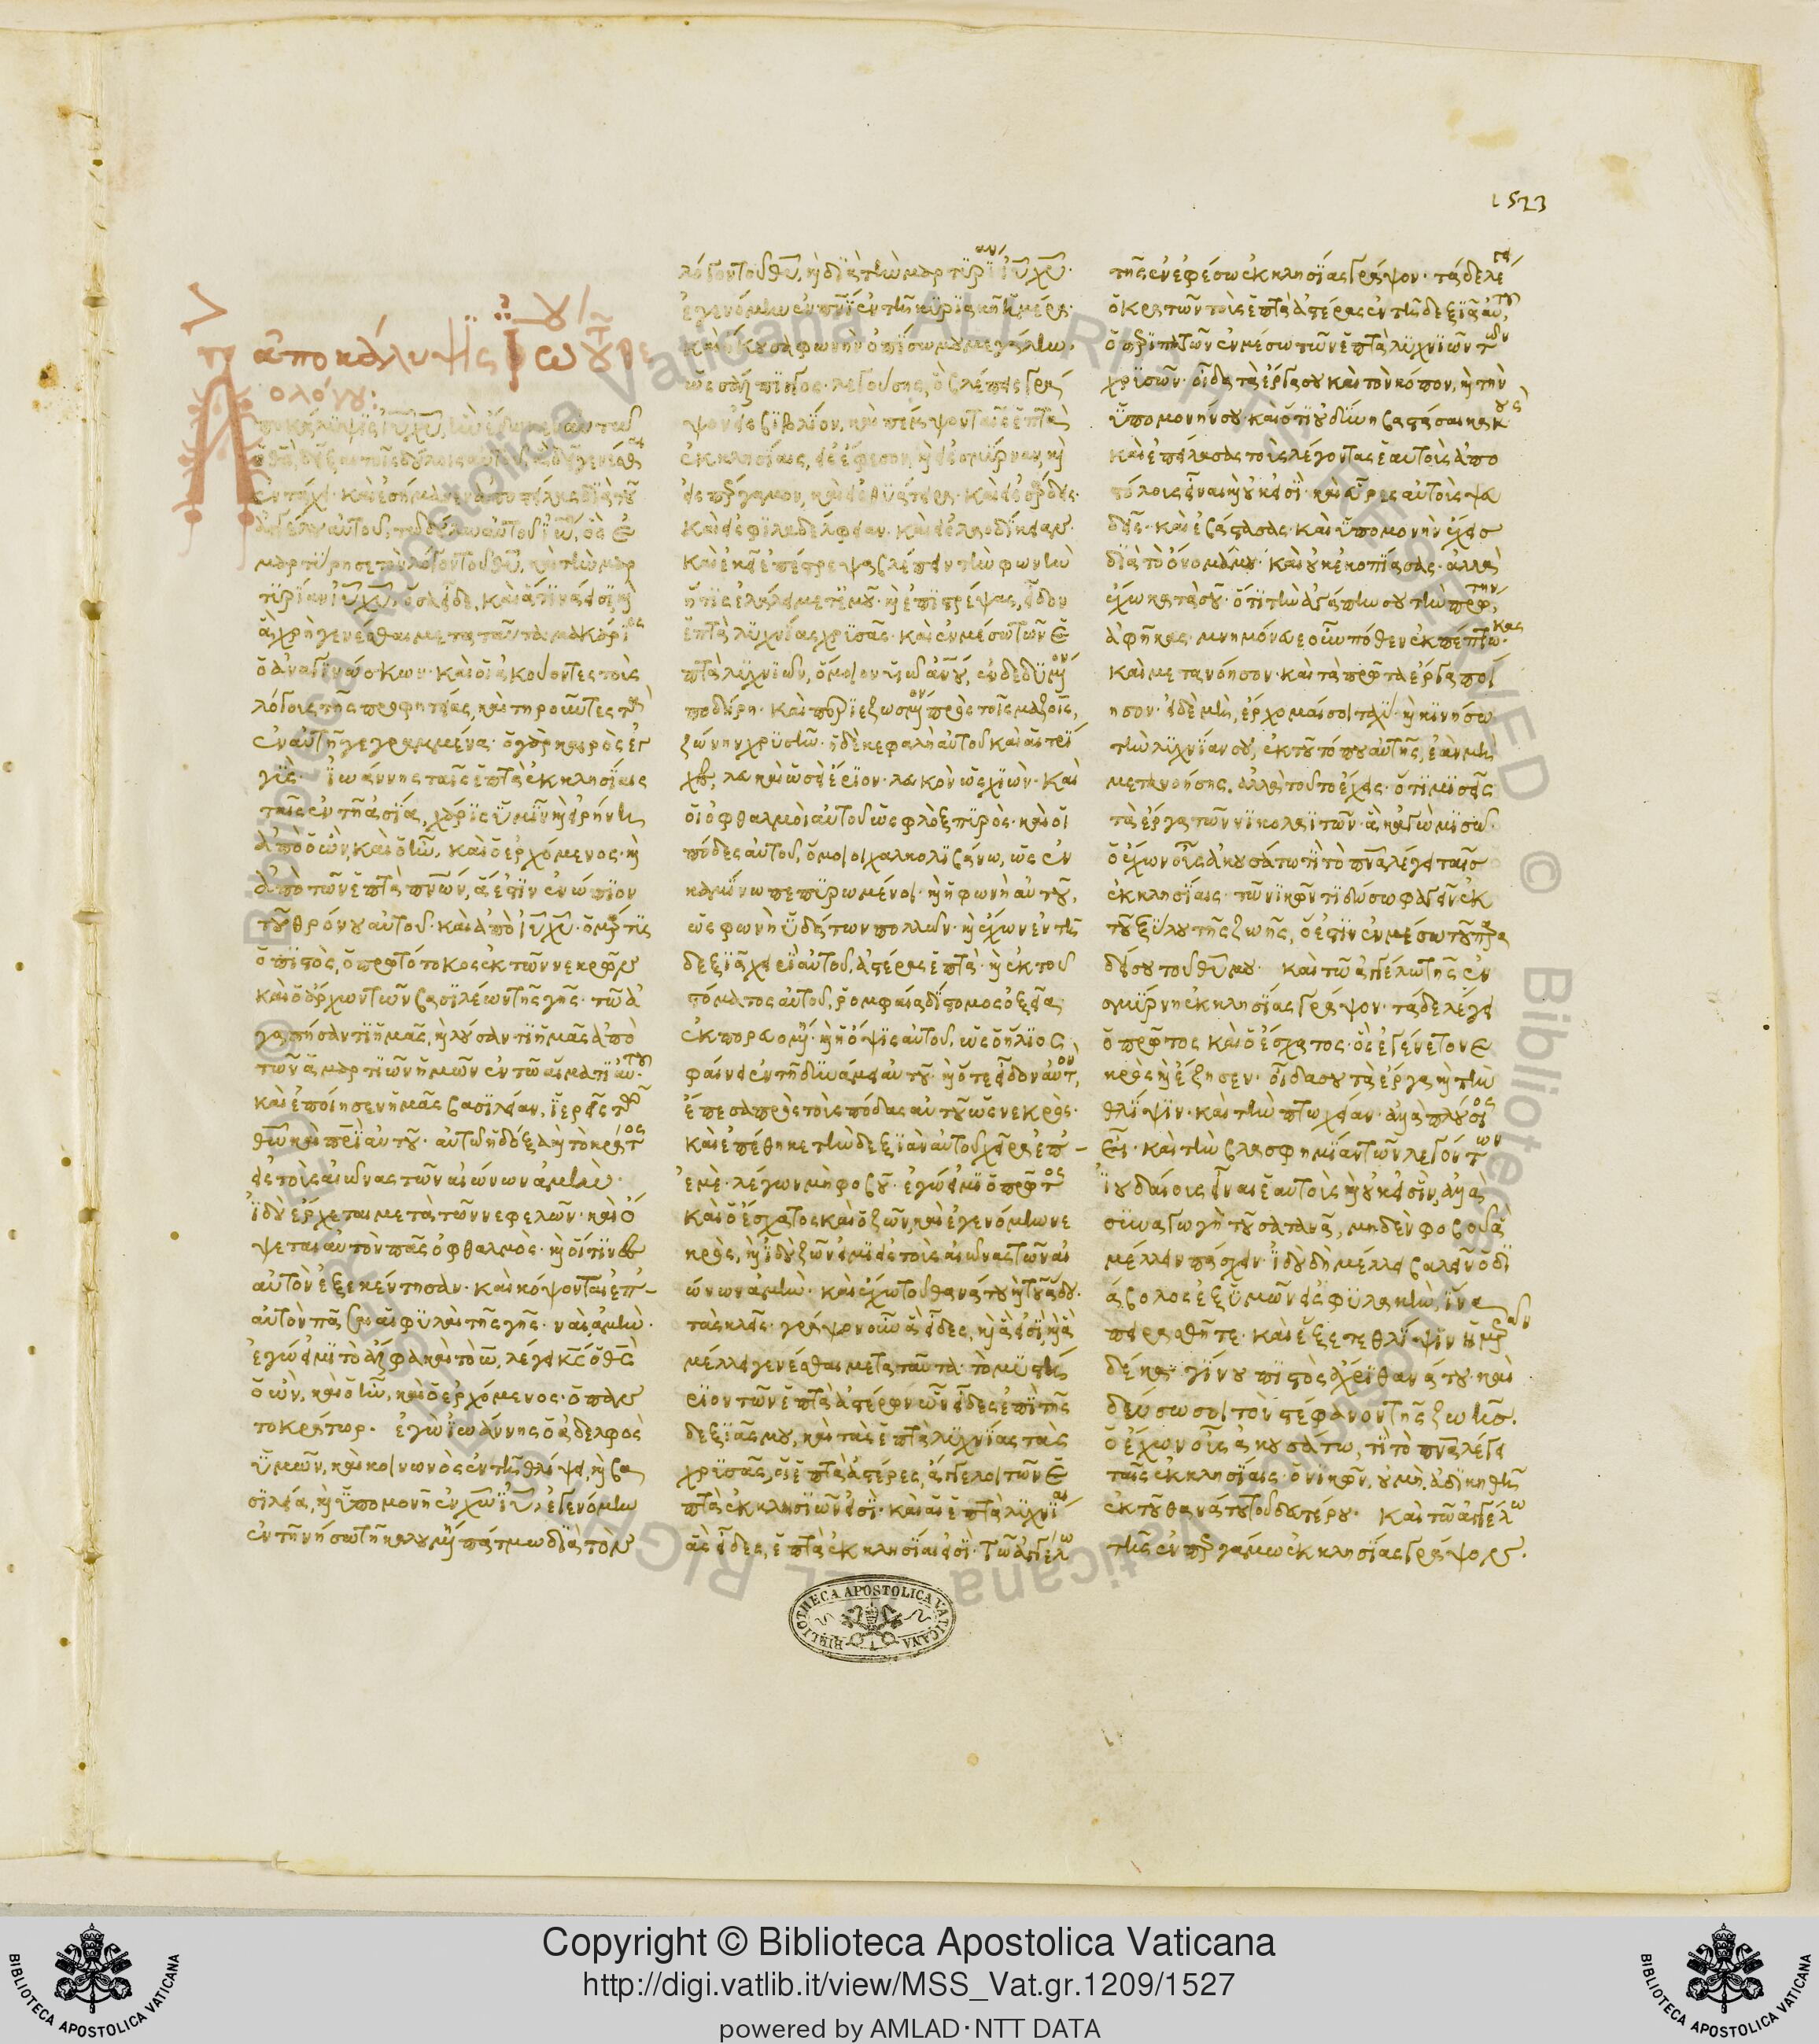 1523
ἀποκάλυψις ἰω τοῦ θε
ολόγου:
ποκάλυψις ἰυ χυ, ἣν ἔδωκεν αὐτῶ
ὁ θς, δεῖξαι τοῖς δούλοις αὐτοῦ, ἃ δεῖ γενέσθαι
ἐν τάχει· καὶ ἐσήμανεν ἀποστείλας διὰ τοῦ
ἀγγέλου αὐτοῦ, τῶ δούλω αὐτοῦ ἰω, ὃς ἐ
μαρτύρησε τὸν λόγον τοῦ θυ, καὶ τὴν μαρ
τυρίαν ἰυ χυ, ὅσα εἶδε, καὶ ἅτινά εἰσι καὶ
ἃ χρὴ γενέσθαι μετὰ ταῦτα μακάριος
ὁ ἀναγινώσκων· καὶ οἱ ἀκούοντες τοὺς
λόγους τῆς προφητείας, καὶ τηροῦντες τὰ
ἐν αὐτῆ γεγραμμένα· ὁ γὰρ καιρὸς ἐγ
γύς· ἰωάννης ταῖς ἑπτὰ ἐκκλησίαις
ταῖς ἐν τῆ ἀσία, χάρις ὑμῖν καὶ εἰρήνη
ἀπὸ ὁ ὢν, καὶ ὁ ἦν, καὶ ὁ ἐρχόμενος· καὶ
ἀπὸ τῶν ἑπτὰ πνων, ἅ ἐστιν ἐνώπιον
τοῦ θρόνου αὐτοῦ· καὶ ἀπὸ ἰυ χυ· ὁ μάρτυς
ὁ πιστὸς, ὁ πρωτότοκος ἐκ τῶν νεκρῶν
καὶ ὁ ἄρχων τῶν βασιλέων τῆς γῆς· τῶ ἀ
γαπήσαντι ἡμᾶς, καὶ λούσαντι ἡμᾶς ἀπὸ
τῶν ἁμαρτιῶν ἡμῶν ἐν τῶ αἵματι αὐτοῦ·
καὶ ἐποίησεν ἡμᾶς βασιλείαν, ἱερεῖς τῶ
θω καὶ πρι αὐτοῦ· αὐτῶ ἡ δόξα καὶ τὸ κράτος
εἰς τοὺς αἰῶνας τῶν αἰώνων ἀμήν·
ἰδοὺ ἔρχεται μετὰ τῶν νεφελῶν· καὶ ὄ
ψεται αὐτὸν πᾶς ὀφθαλμὸς· καὶ οἵτινες
αὐτὸν ἐξεκέντησαν· καὶ κόψονται ἐπ-
αὐτὸν πᾶσαι αἱ φυλαὶ τῆς γῆς· ναὶ, ἀμήν·
ἐγώ εἰμι τὸ ἄλφα καὶ τὸ ω, λέγει κς ὁ θς
ὁ ὢν, καὶ ὁ ἦν, καὶ ὁ ἐρχόμενος· ὁ παν
τοκράτωρ. ἐγὼ ἰωάννης ὁ ἀδελφὸς
ὑμῶν, καὶ κοινωνὸς ἐν τῆ θλίψει, καὶ βα
σιλεία, καὶ ὑπομονῆ ἐν χω ἰυ, ἐγενόμην
ἐν τῆ νήσω τῆ καλουμένη πάτμω διὰ τὸν
λόγον τοῦ θυ, καὶ διὰ τὴν μαρτυρίαν ἰυ χυ·
ἐγενόμην ἐν πνι ἐν τῆ κυριακῆ ἡμέρα·
καὶ ἤκουσα φωνὴν ὀπίσω μου μεγάλην·
ὡς σάλπιγγος· λεγούσης, ὃ βλέπεις γρά
ψον εἰς βιβλίον, καὶ πέμψον ταῖς ἑπτὰ
ἐκκλησίαις, εἰς ἔφεσον, καὶ εἰς σμύρναν, καὶ
εἰς πέργαμον, καὶ εἰς θυάτειρα· καὶ εἰς σάρδεις·
καὶ εἰς φιλαδέλφειαν· καὶ εἰς λαοδίκειαν·
καὶ ἐκεῖ ἐπέστρεψα βλέπειν τὴν φωνὴν
ἥτις ἐλάλει μετ' ἐμοῦ· καὶ ἐπιστρέψας, εἶδον
ἑπτὰ λυχνίας χρυσᾶς· καὶ ἐν μέσω τῶν ἑ
πτὰ λυχνιῶν, ὅμοιον υἱῶ ἀνου, ἐνδεδυμένον
ποδήρη· καὶ περιεζωσμένον πρὸς τοῖς μαζοῖς,
ζώνην χρυσῆν· ἡ δὲ κεφαλὴ αὐτοῦ καὶ αἱ τρί
χες, λευκαὶ ὡσεὶ ἔριον· λευκὸν ὡς χιὼν· καὶ
οἱ ὀφθαλμοὶ αὐτοῦ ὡς φλὸξ πυρὸς· καὶ οἱ
πόδες αὐτοῦ, ὅμοιοι χαλκολιβάνω, ὡς ἐν
καμίνω πεπυρωμένοι· καὶ ἡ φωνὴ αὐτοῦ,
ὡς φωνὴ ὑδάτων πολλῶν· καὶ ἔχων ἐν τῆ
δεξιᾶ χειρὶ αὐτοῦ, ἀστέρας ἑπτὰ· καὶ ἐκ τοῦ
στόματος αὐτοῦ, ῥομφαία δίστομος ὀξεῖα
ἐκπορευομένη· καὶ ἡ ὄψις αὐτοῦ, ὡς ὁ ἥλιος
φαίνει ἐν τῆ δυνάμει αὐτοῦ· καὶ ὅτε εἶδον αὐτὸν,
ἔπεσα πρὸς τοὺς πόδας αὐτοῦ ὡς νεκρὸς·
καὶ ἐπέθηκε τὴν δεξιὰν αὐτοῦ χεῖρα ἐπ-
ἐμὲ· λέγων μὴ φοβοῦ· ἐγώ εἰμι ὁ πρῶτος
καὶ ὁ ἔσχατος καὶ ὁ ζῶν, καὶ ἐγενόμην νε
κρὸς, καὶ ἰδοὺ ζῶν εἰμι εἰς τοὺς αἰῶνας τῶν αἰ
ώνων ἀμήν· καὶ ἔχω τοῦ θανάτου καὶ τοῦ ἅδου
τὰς κλεῖς· γράψον οὖν ἃ εἶδες, καὶ ἃ εἰσὶ, καὶ ἃ
μέλλει γενέσθαι μετὰ ταῦτα· τὸ μυστή
ριον τῶν ἑπτὰ ἀστέρων ὧν εἶδες ἐπὶ τῆς
δεξιᾶς μου, καὶ τὰς ἑπτὰ λυχνίας τὰς
χρυσᾶς, οἱ ἑπτὰ ἀστέρες, ἄγγελοι τῶν ἑ
πτὰ ἐκκλησιῶν εἰσὶ· καὶ αἱ ἑπτὰ λυχνίαι
ἃς εἶδες, ἑπτὰ ἐκκλησίαι εἰσὶ· τῶ ἀγγέλω
τῆς ἐν ἐφέσω ἐκκλησίας γράψον· τάδε λέγει
ὁ κρατῶν τοὺς ἑπτὰ ἀστέρας ἐν τῆ δεξιᾶ αὐτοῦ,
ὁ περιπατῶν ἐν μέσω τῶν ἑπτὰ λυχνιῶν τῶν
χρυσῶν· οἶδα τὰ ἔργα σου καὶ τὸν κόπον, καὶ τὴν
ὑπομονήν σου καὶ ὅτι οὐ δύνη βαστάσαι κακοὺς
καὶ ἐπείρασας τοὺς λέγοντας ἑαυτοὺς ἀπο
στόλους εἶναι καὶ οὐκ εἰσὶ· καὶ εὗρες αὐτοὺς ψευ
δεῖς· καὶ ἐβάστασας· καὶ ὑπομονὴν ἔχεις
διὰ τὸ ὄνομά μου· καὶ οὐ κεκοπίασας· ἀλλὰ
ἔχω κατὰ σοῦ· ὅτι τὴν ἀγάπην σου τὴν πρώτην,
ἀφῆκας· μνημόνευε οὖν πόθεν ἐκπέπτωκας
καὶ μετανόησον· καὶ τὰ πρῶτα ἔργα ποί
ησον· εἰ δὲ μὴ, ἔρχομαί σοι ταχὺ· καὶ κινήσω
τὴν λυχνίαν σου, ἐκ τοῦ τόπου αὐτῆς, ἐὰν μὴ
μετανοήσης, ἀλλὰ τοῦτο ἔχεις· ὅτι μισεῖς
τὰ ἔργα τῶν νικολαϊτῶν· ἃ κἀγὼ μισῶ·
ὁ ἔχων οὖς ἀκουσάτω τί τὸ πνα λέγει ταῖς
ἐκκλησίαις· τῶ νικῶντι δώσω φαγεῖν ἐκ
τοῦ ξύλου τῆς ζωῆς, ὅ ἐστιν ἐν μέσω τοῦ παρα
δείσου τοῦ θυ μου· καὶ τῶ ἀγγέλω τῆς ἐν
σμύρνη ἐκκλησίας γράψον· τάδε λέγει
ὁ πρῶτος καὶ ὁ ἔσχατος· ὃς ἐγένετο νε
κρὸς καὶ ἔζησεν· οἶδα σου τὰ ἔργα καὶ τὴν
θλίψιν· καὶ τὴν πτωχείαν· ἀλλὰ πλούσιος
εἶ· καὶ τὴν βλασφημίαν τῶν λεγόντων
ἰουδαίους εἶναι ἑαυτοὺς καὶ οὐκ εἰσὶν, ἀλλὰ
συναγωγὴ τοῦ σατανᾶ, μηδὲν φοβοῦ ἃ
μέλλεις πάσχειν· ἰδοὺ δὴ μέλλει βαλεῖν ὁ δι
άβολος ἐξ ὑμῶν εἰς φυλακὴν, ἵνα
πειρασθῆτε· καὶ ἕξετε θλίψιν ἡμερῶν
δέκα· γίνου πιστὸς ἄχρι θανάτου· καὶ
δώσω σοι τὸν στέφανον τῆς ζωῆς.
ὁ ἔχων οὖς ἀκουσάτω, τί τὸ πνα λέγει
ταῖς ἐκκλησίαις· ὁ νικῶν, οὐ μὴ ἀδικηθῆ
ἐκ τοῦ θανάτου τοῦ δευτέρου· καὶ τῶ ἀγγέλω
τῆς ἐν περγάμω ἐκκλησίας γράψον·
BIBLIOTHECA APOSTOLICA VATICANA
Copyright © Biblioteca Apostolica Vaticana
http://digi.vatlib.it/view/MSS_Vat.gr.1209/1527
powered by AMLAD·NTT DATA
BIBLIOTECA APOSTOLICA VATICANA
BIBLIOTECA APOSTOLICA VATICANA